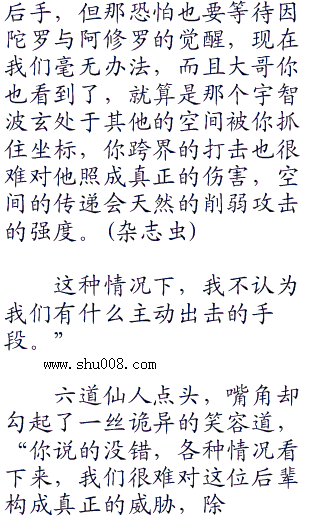 后手，但那恐怕也要等待因
陀罗与阿修罗的觉醒，现在
我们毫无办法，而且大哥你
也看到了，就算是那个宇智
波玄处于其他的空间被你抓
住坐标，你跨界的打击也很
难对他照成真正的伤害，空
间的传递会天然的削弱攻击
的强度。(杂志虫)
这种情况下，我不认为
我们有什么主动出击的手
段。”
www.shu008.com
六道仙人点头，嘴角却
勾起了一丝诡异的笑容道，
“你说的没错，各种情况看
下来，我们很难对这位后辈
构成真正的威胁，除